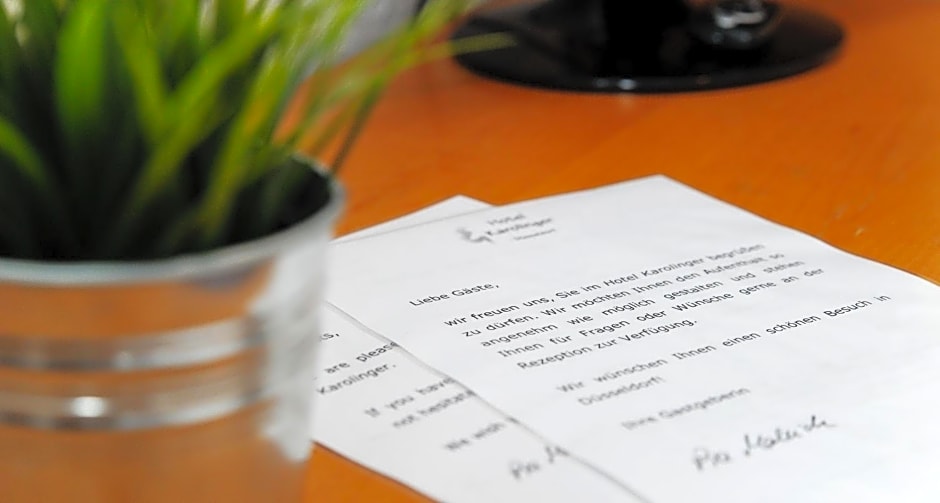 Hotel
Karolinger
Düsseldorf
Liebe Gäste,
wir freuen uns, Sie im Hotel Karolinger begrüßen
zu dürfen. Wir möchten Ihnen den Aufenthalt so
angenehm wie möglich gestalten und stehen
Ihnen für Fragen oder Wünsche gerne an der
Rezeption zur Verfügung.
Wir wünschen Ihnen einen schönen Besuch in
Düsseldorf!
Ihre Gastgeberin
are please
Karolinger.
If you have
not hesitate
We wish